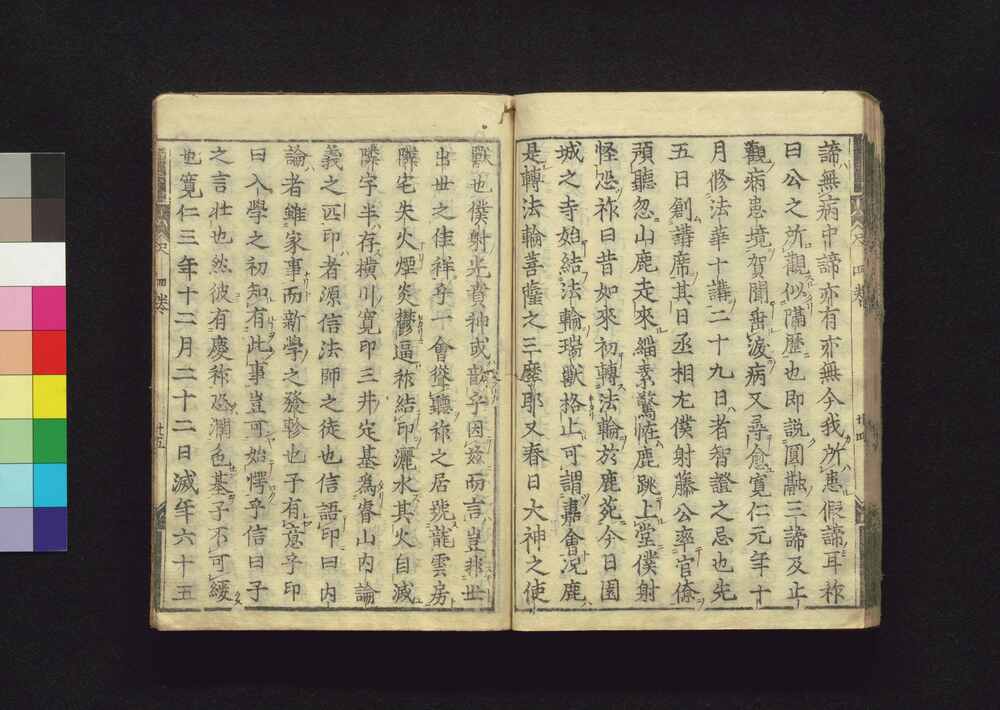 諦無病中諦亦有亦無今我所患假諦耳祚
曰公之所觀似隔歷也即說圓融三諦及止
觀病患境賀聞垂淚病又尋愈寬仁元年十
月修法華十講二十九日者智證之忌也先
五日創講席其日丞相左僕射藤公率官僚
預聽忽山鹿走來緇素驚怪鹿跳上堂僕射
怪恐祚曰昔如來初轉法輪於鹿苑今日園
城之寺始結法輪瑞獸格止可謂嘉會況鹿
是轉法輪菩薩之三摩耶又春日大神之使
獸也僕射光賁神或歆乎因茲而言豈非世
出世之佳祥乎一會聳聽祚之居號龍雲房
隣宅失火煙炎鬱逼祚結印灑水其火自滅
隣宇半存橫川寬印三井定基為睿山內論
義之匹印者源信法師之徒也信語印曰內
論者雖家事而新學之發軫也子有意乎印
曰入學之初知有此事豈可始愕乎信曰子
之言壯也然彼有慶祚恐潤色基子不可緩
也寬仁三年十二月二十二日滅年六十五
四卷
廿四
四卷
廿五